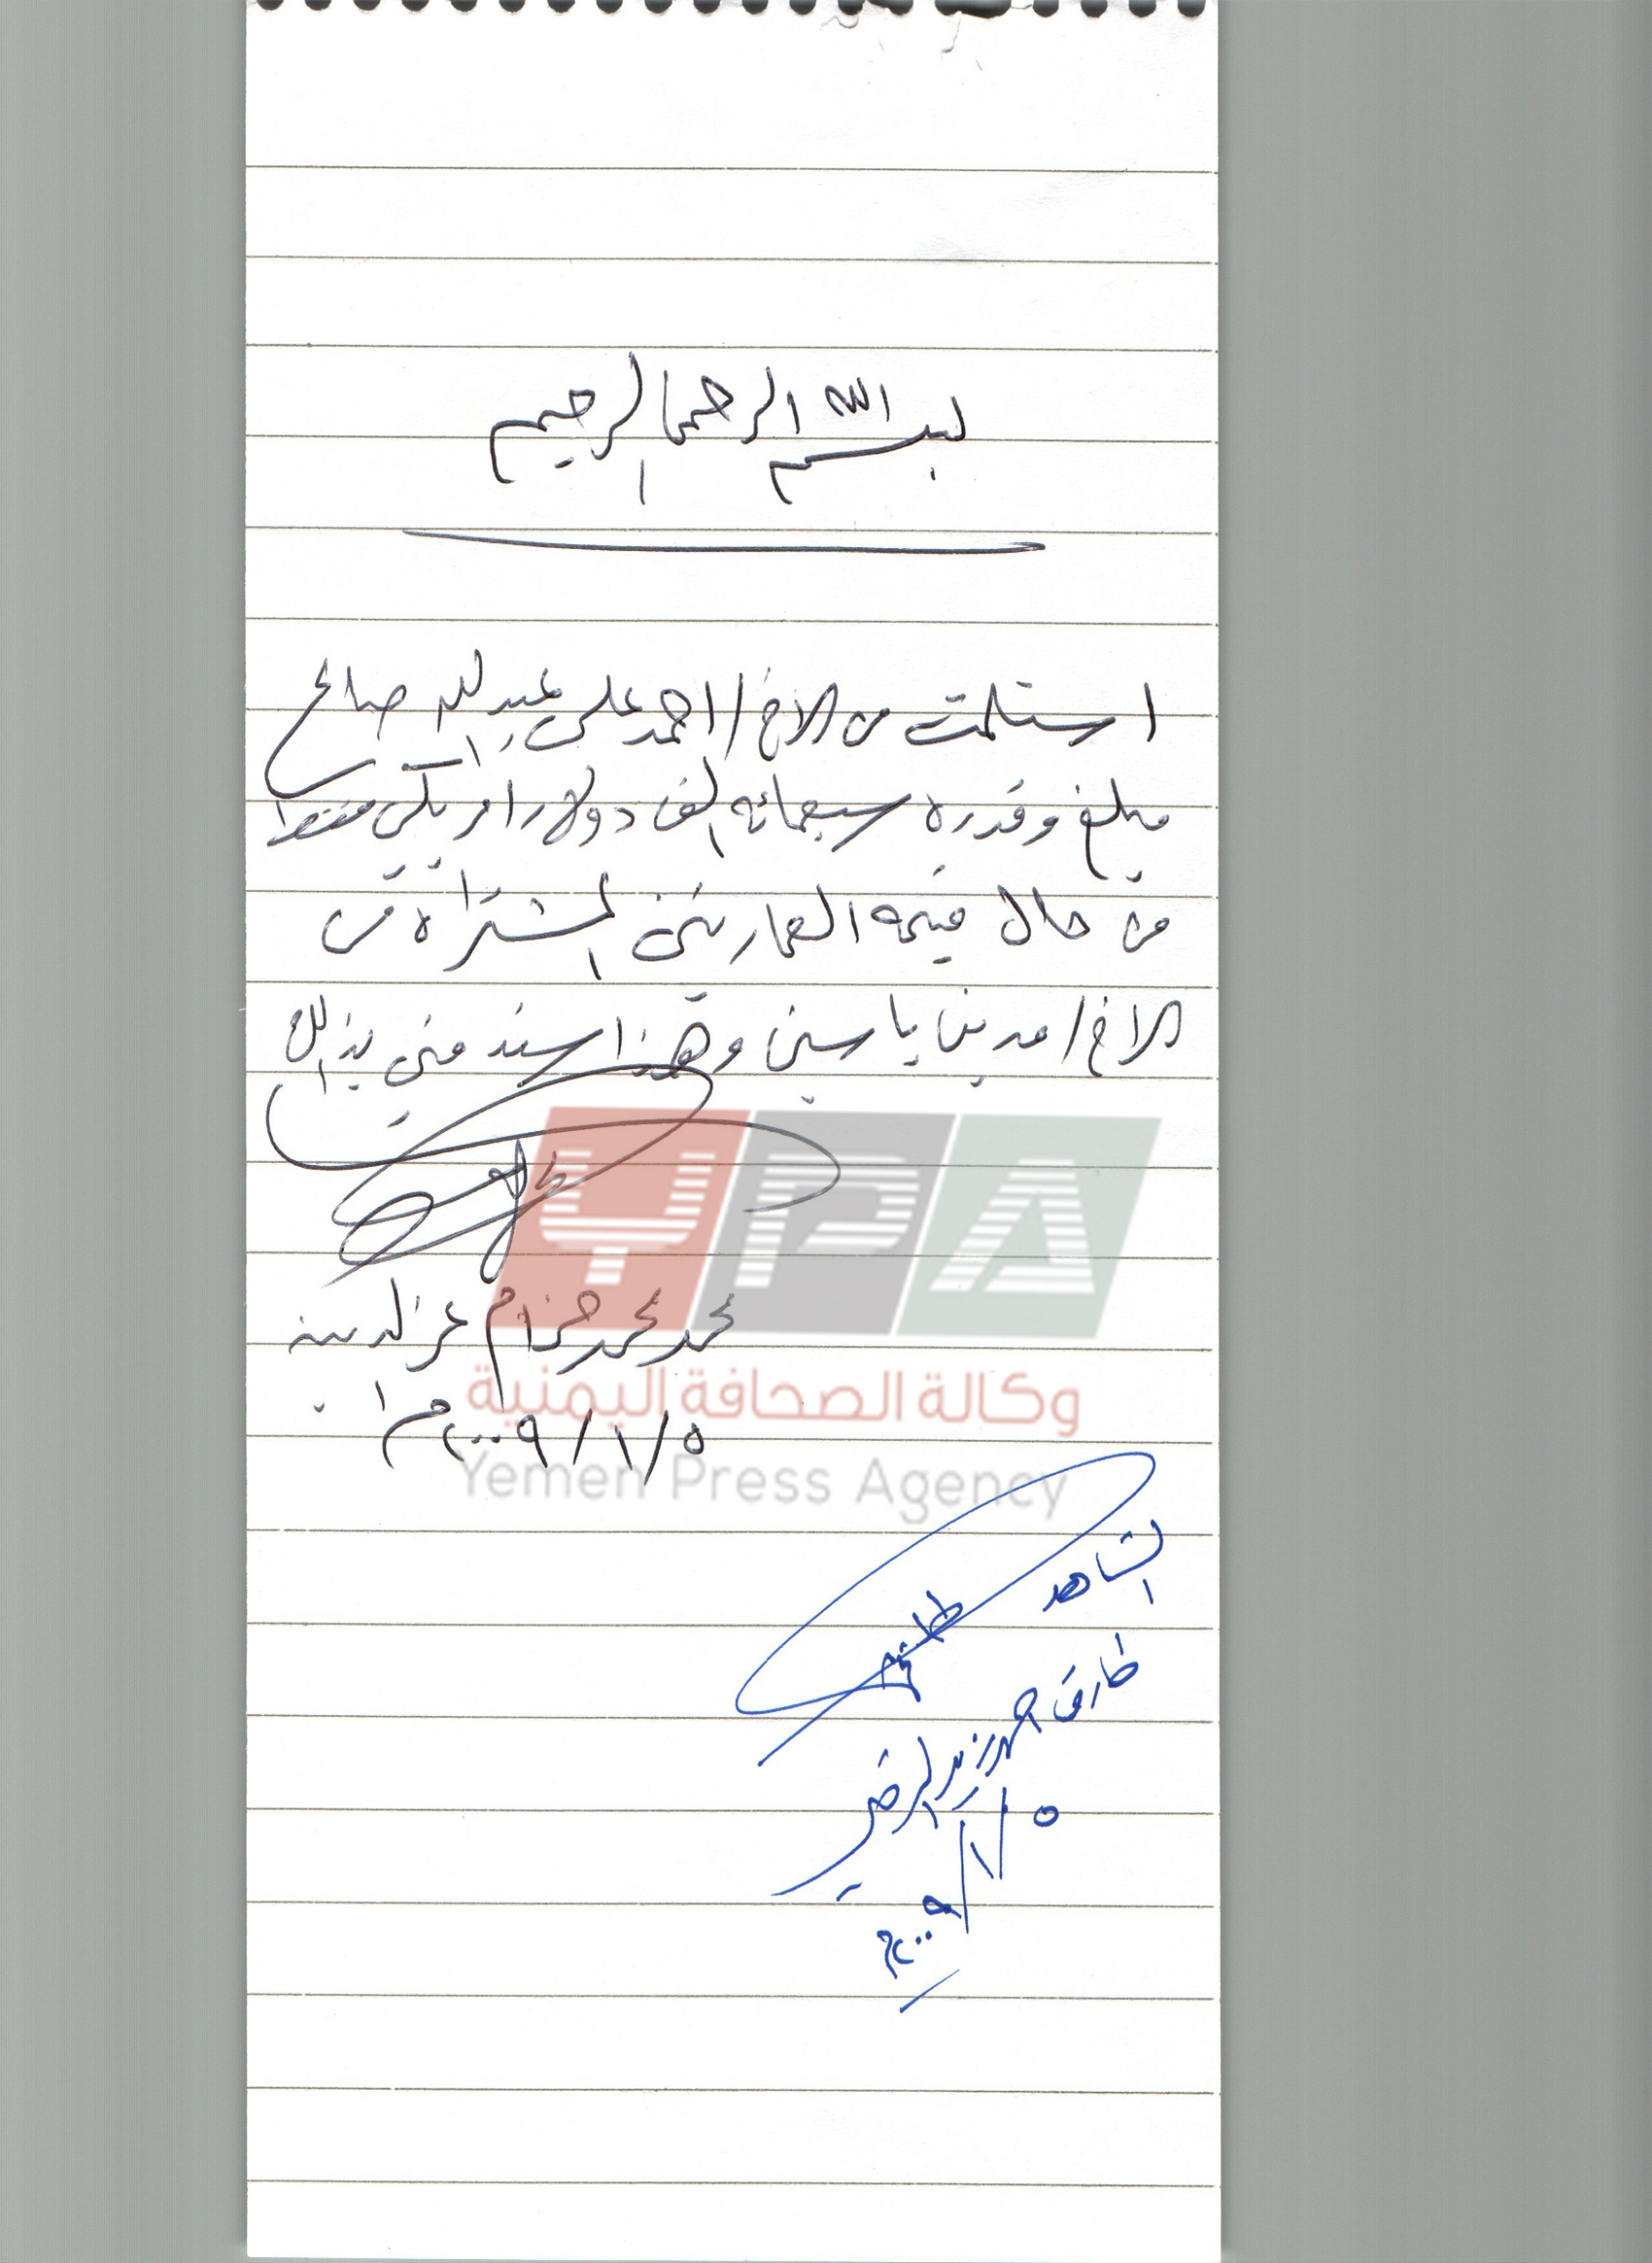 بسم الله الرحمن الرحيم
استلمت من الاخ/ احمد علي عبدالله صالح
مبلغ وقدره سبعمائه الف دولار امريكي فقط
من حال قيمه العمارتين المشتراه من
الاخ/ مدين ياسين وهذا سند مني بذالك
محمد محمد حزام عزالدين
٥/١/٢٠٠٩م
YPA
وكالة الصحافة اليمنية
Yemen Press Agency
الشاهد
طارق احمد زيد الرضي
٥/١/٢٠٠٩م